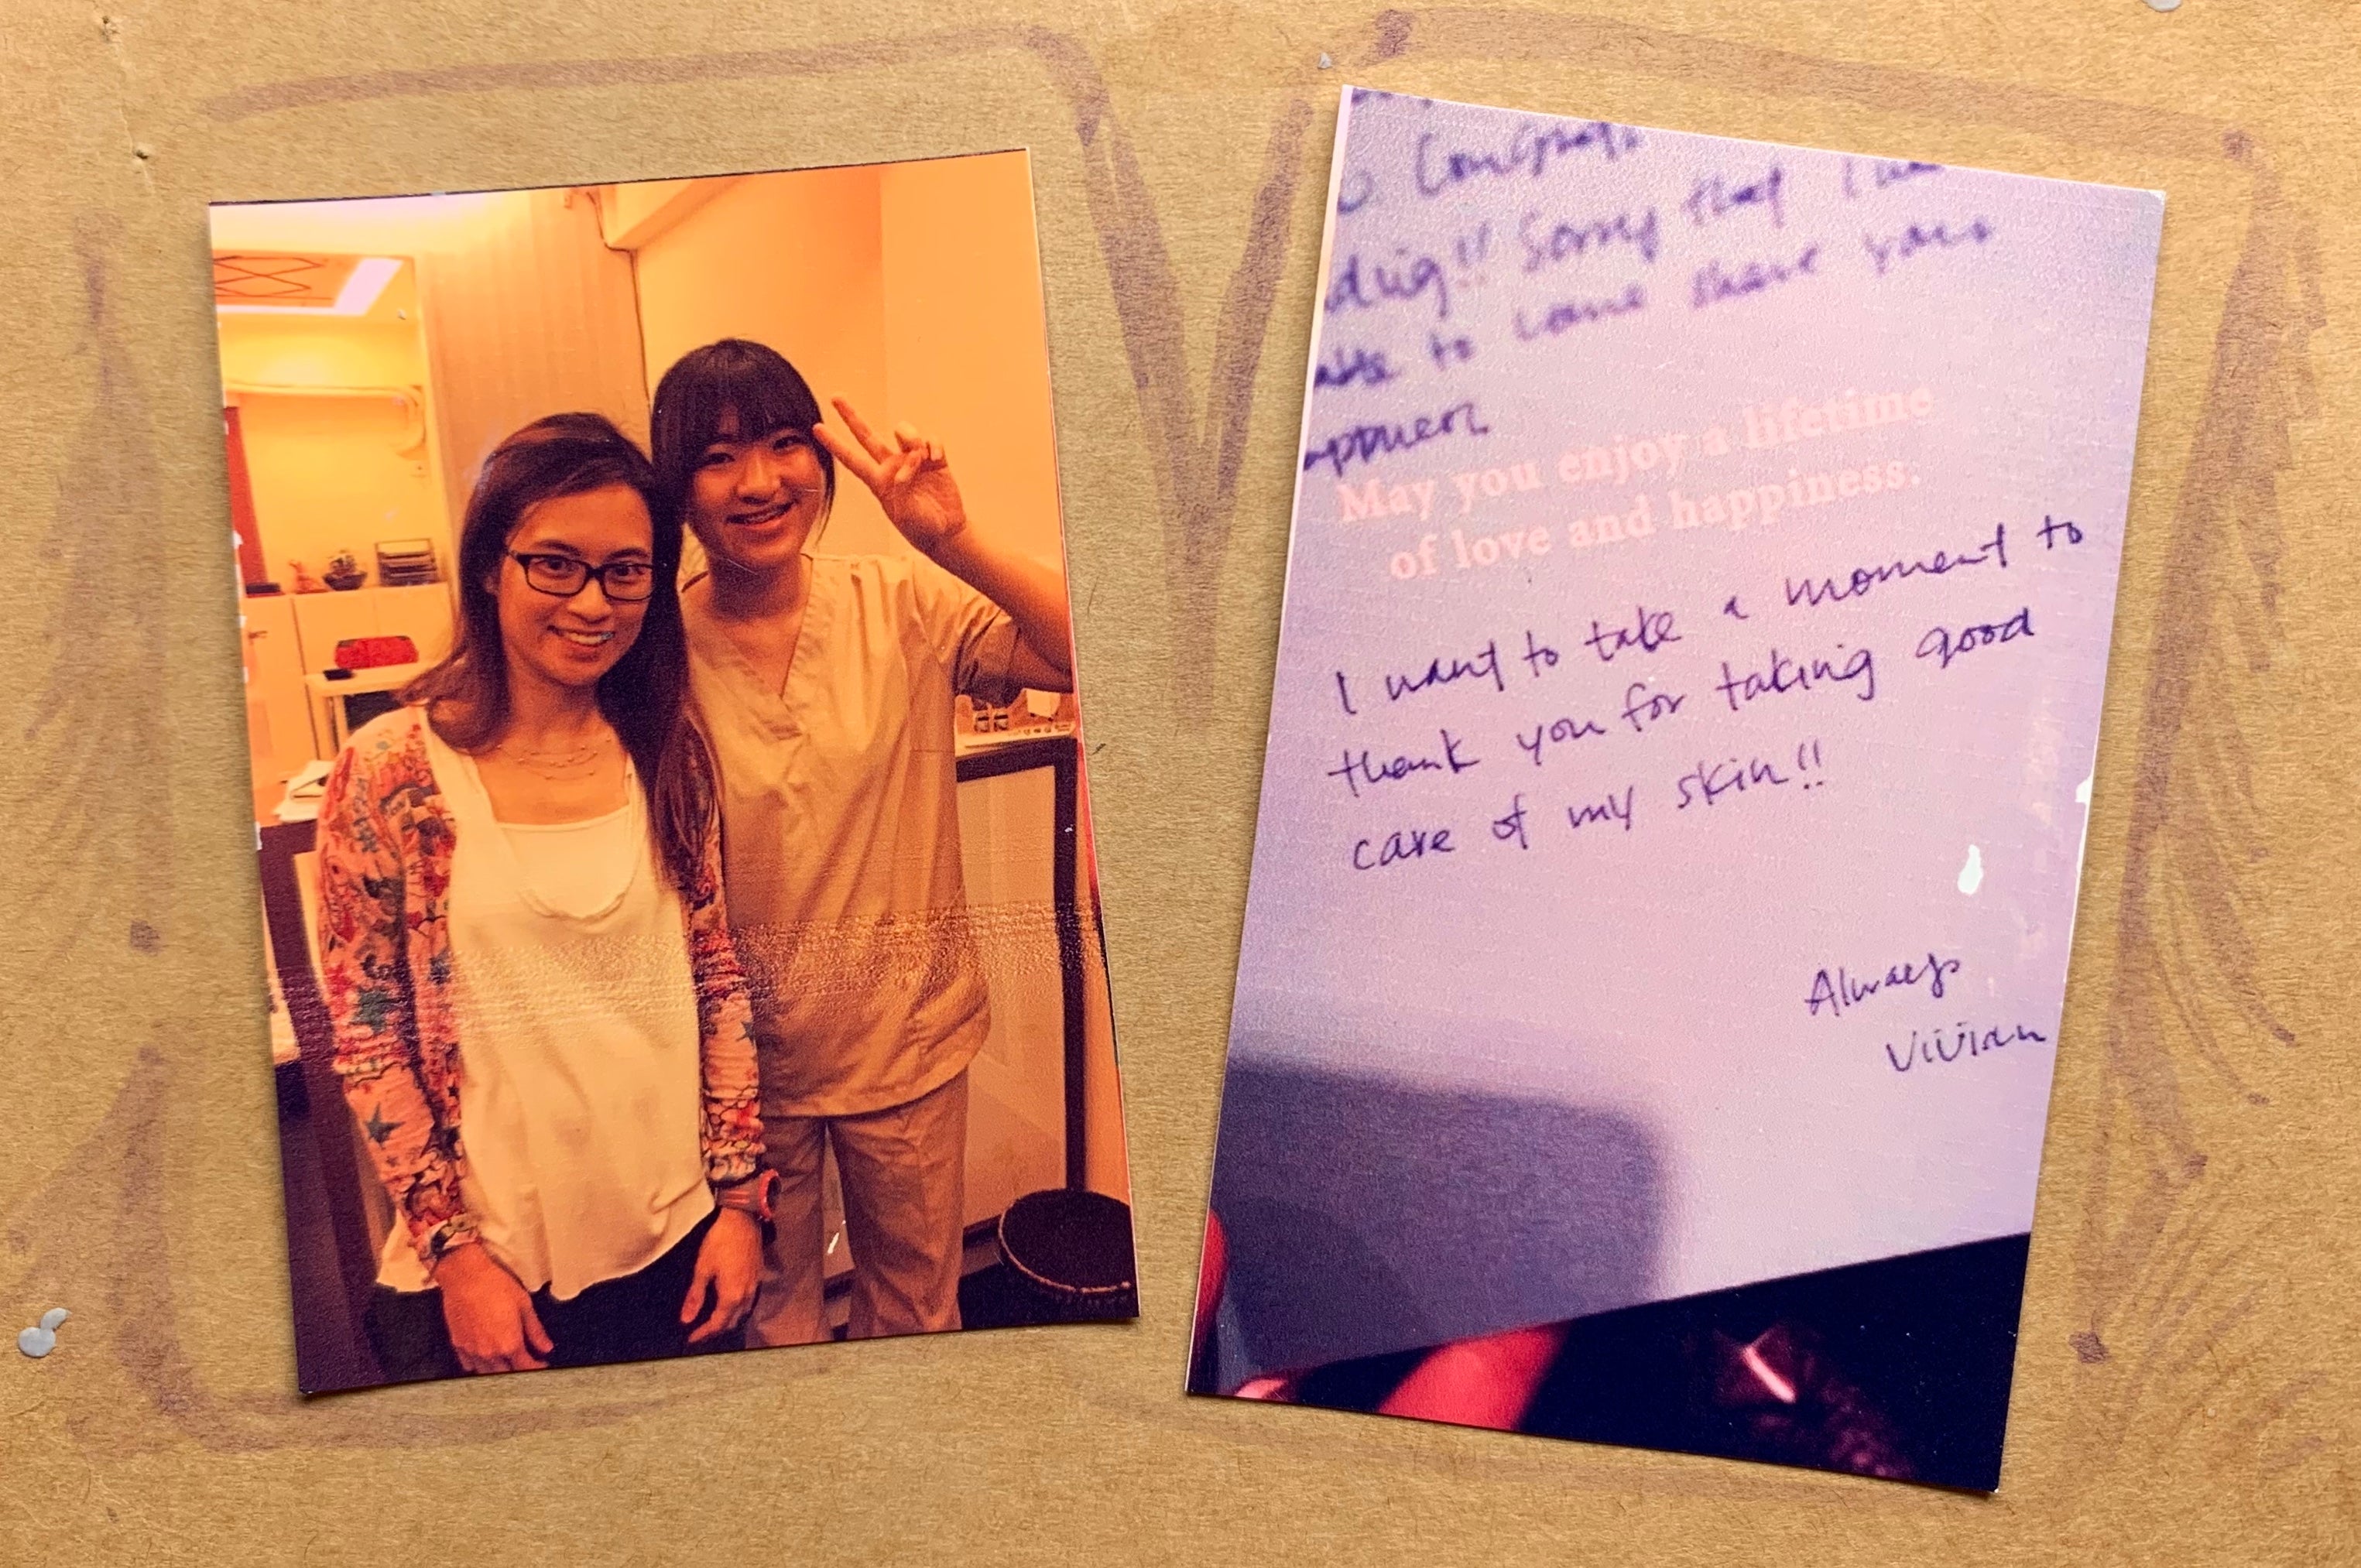 Congrats
!! Sorry that I
to come share your
May you enjoy a lifetime
of love and happiness.
I want to take a moment to
thank you for taking good
care of my skin!!
Always
Vivian